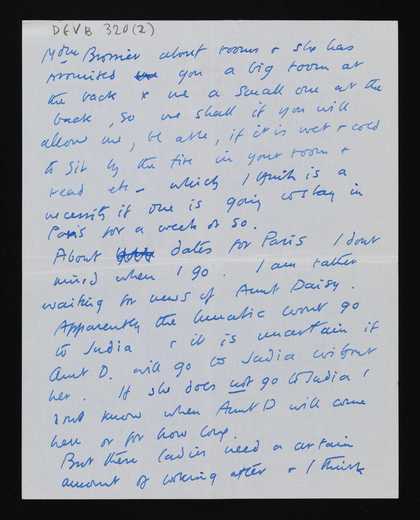 DEVB 320(2)
Mdme Brossier about rooms + she has
promised you a big room at
the back + me a small one at the
back, so we shall if you will
allow me, be able, if it is wet + cold
to sit by the fire in your room +
read etc - which I think is a
necessity if one is going to stay in
Paris for a week or so.
About dates for Paris I dont
mind when I go. I am rather
waiting for news of Aunt Daisy.
Apparently the lunatic wont go
to India + it is uncertain if
Aunt D. will go to India without
her. If she does not go to India I
dont know when Aunt D will come
here or for how long.
But these ladies need a certain
amount of looking after + I think